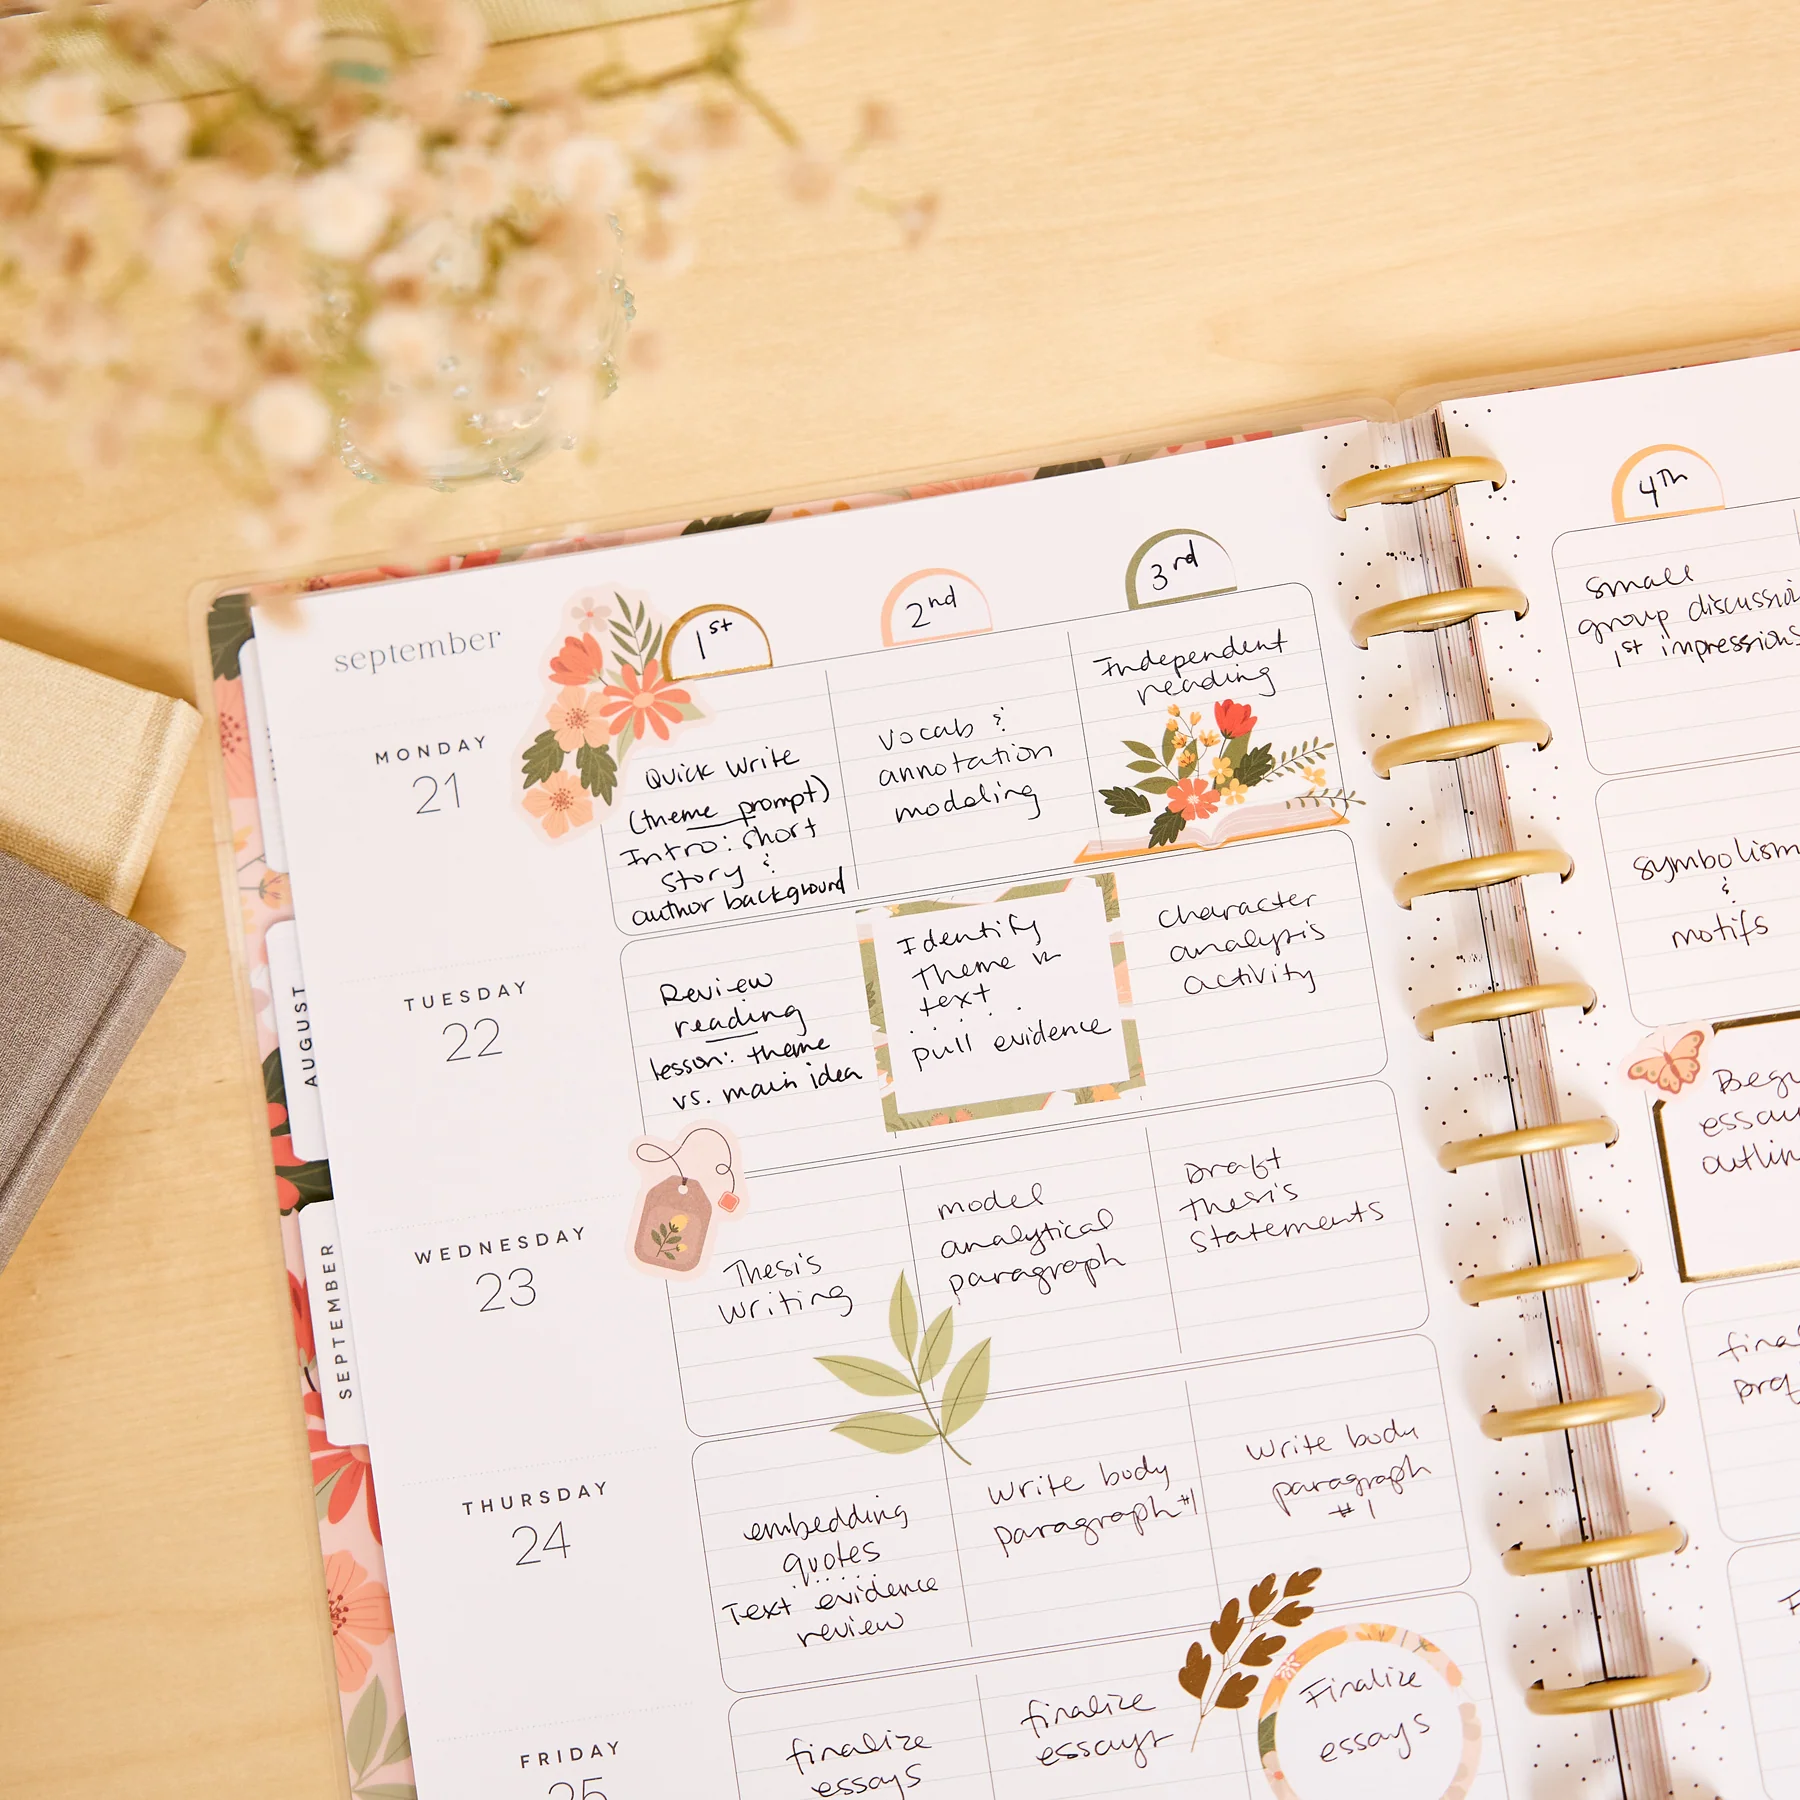 september
1st
2nd
3rd
4th
MONDAY
21
Quick write
(theme prompt)
Intro: short
story &
author background
vocab &
annotation
modeling
Independent
reading
small
group discussion
1st impressions
TUESDAY
22
Review
reading
lesson: theme
vs. main idea
Identify
theme in
text
pull evidence
character
analysis
activity
symbolism
&
motifs
WEDNESDAY
23
Thesis
writing
model
analytical
paragraph
Draft
thesis
statements
THURSDAY
24
embedding
quotes
Text evidence
review
write body
paragraph #1
write body
paragraph
#1
FRIDAY
25
finalize
essays
finalize
essays
Finalize
essays
AUGUST
SEPTEMBER